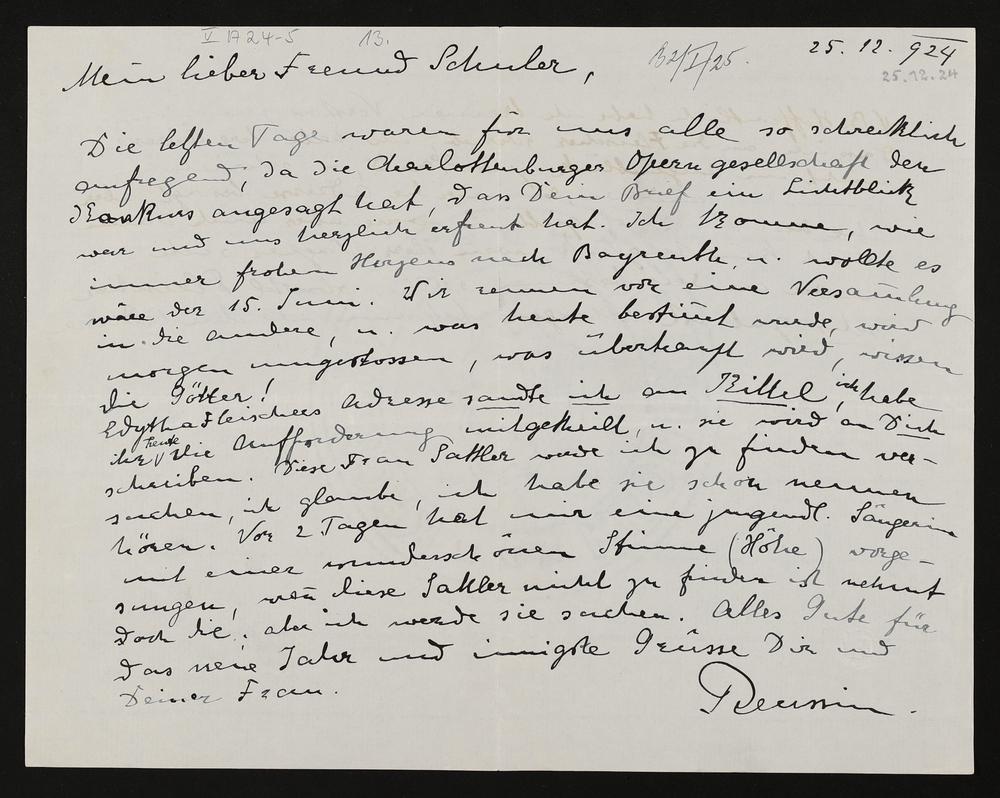 V 17 A 24-5
13.
B 2/I/25.
25. 12. 924
25.12.24
Mein lieber Freund Schuler,
Die letzten Tage waren für uns alle so schrecklich
aufregend, da die Charlottenburger Operngesellschaft den
Konkurs angesagt hat, dass Dein Brief ein Lichtblick
war und uns herzlich erfreut hat. Ich komme, wie
immer frohen Herzens nach Bayreuth, u. wollte es
wäre der 15. Juni. Wir rennen von eine Versam̅lung
in die andere, u. was heute bestim̅t wurde, wird
morgen umgestossen, was überhaupt wird, wissen
die Götter!
Edytha Fleischers Adresse sandte ich an Kittel, ich habe
ihr heute die Aufforderung mitgetheilt, u. sie wird an Dich
schreiben. Diese Frau Sattler werde ich zu finden ver-
suchen, ich glaube, ich habe sie schon nennen
hören. Vor 2 Tagen hat mir eine jugendl. Sängerin
mit einer wunderschönen Stimme (Höhe) vorge-
sungen, wen̅ diese Sattler nicht zu finden ist nehmt
doch die, aber ich werde sie suchen. Alles Gute für
das neue Jahr und innigste Grüsse Dir und
Deiner Frau.